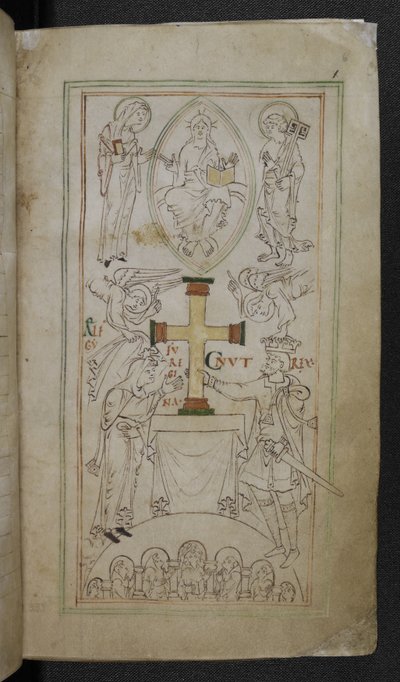 ÆLF
GY
FU
REGI
NA
CNUT REX